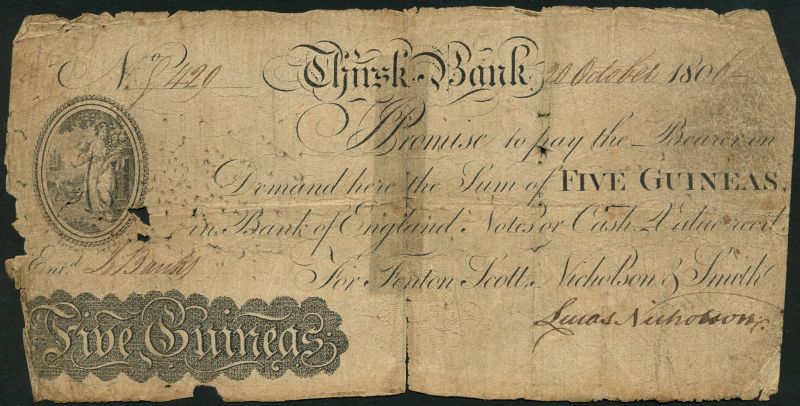 No. J420 Thirsk Bank 20 October 180
I Promise to pay the Bearer on
Demand here the Sum of FIVE GUINEAS,
in Bank of England Notes or Cash. Value rec'd.
Ent'd. Banks For Fenton Scott, Nicholson & Smith
Five Guineas. Lucas Nicholson